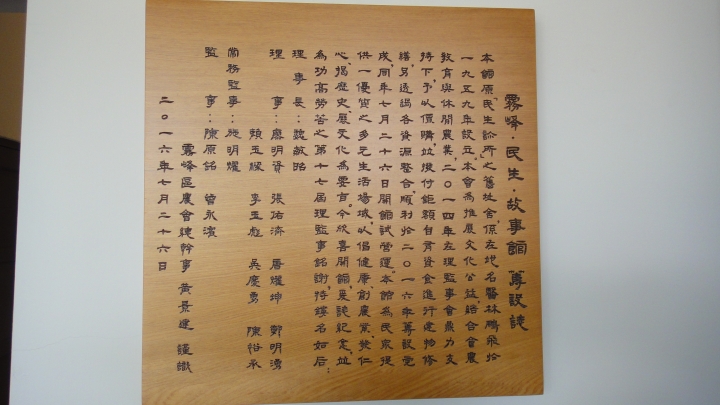 霧峰·民生·故事館 籌設誌
本館原「民生診所」之舊址舍，係在地名醫林鵬飛於
一九五九年設立。本會為推展文化公益，結合會農
教育與休閒農業，二〇一四年在理監事會鼎力支
持下，予以價購並撥付鉅額自有資金進行建物修
繕，另透過各資源整合，順利於二〇一六年籌設完
成，同年七月二十六日開館試營運。本館為民眾提
供一優質之多元生活場域，以倡健康、創農業、發仁
心、揭歷史、展文化為要旨。今欣喜開館，爰誌紀念，並
為功高勞苦之第十七屆理監事銘謝，特鏤名如后：
理事長：魏敏昭
理　事：廖明資　張佑濟　曆耀坤　鄭明湧
賴玉緩　李玉彪　吳慶勇　陳怡承
常務監事：施明耀
監　事：陳原銘　曾永濱
霧峰區農會總幹事 黃景建 謹識
二〇一六年七月二十六日